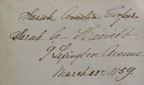 Sarah Amelia Cooper
Sarah A. Hewitt
9 Lexington Avenue
March 20 1859.